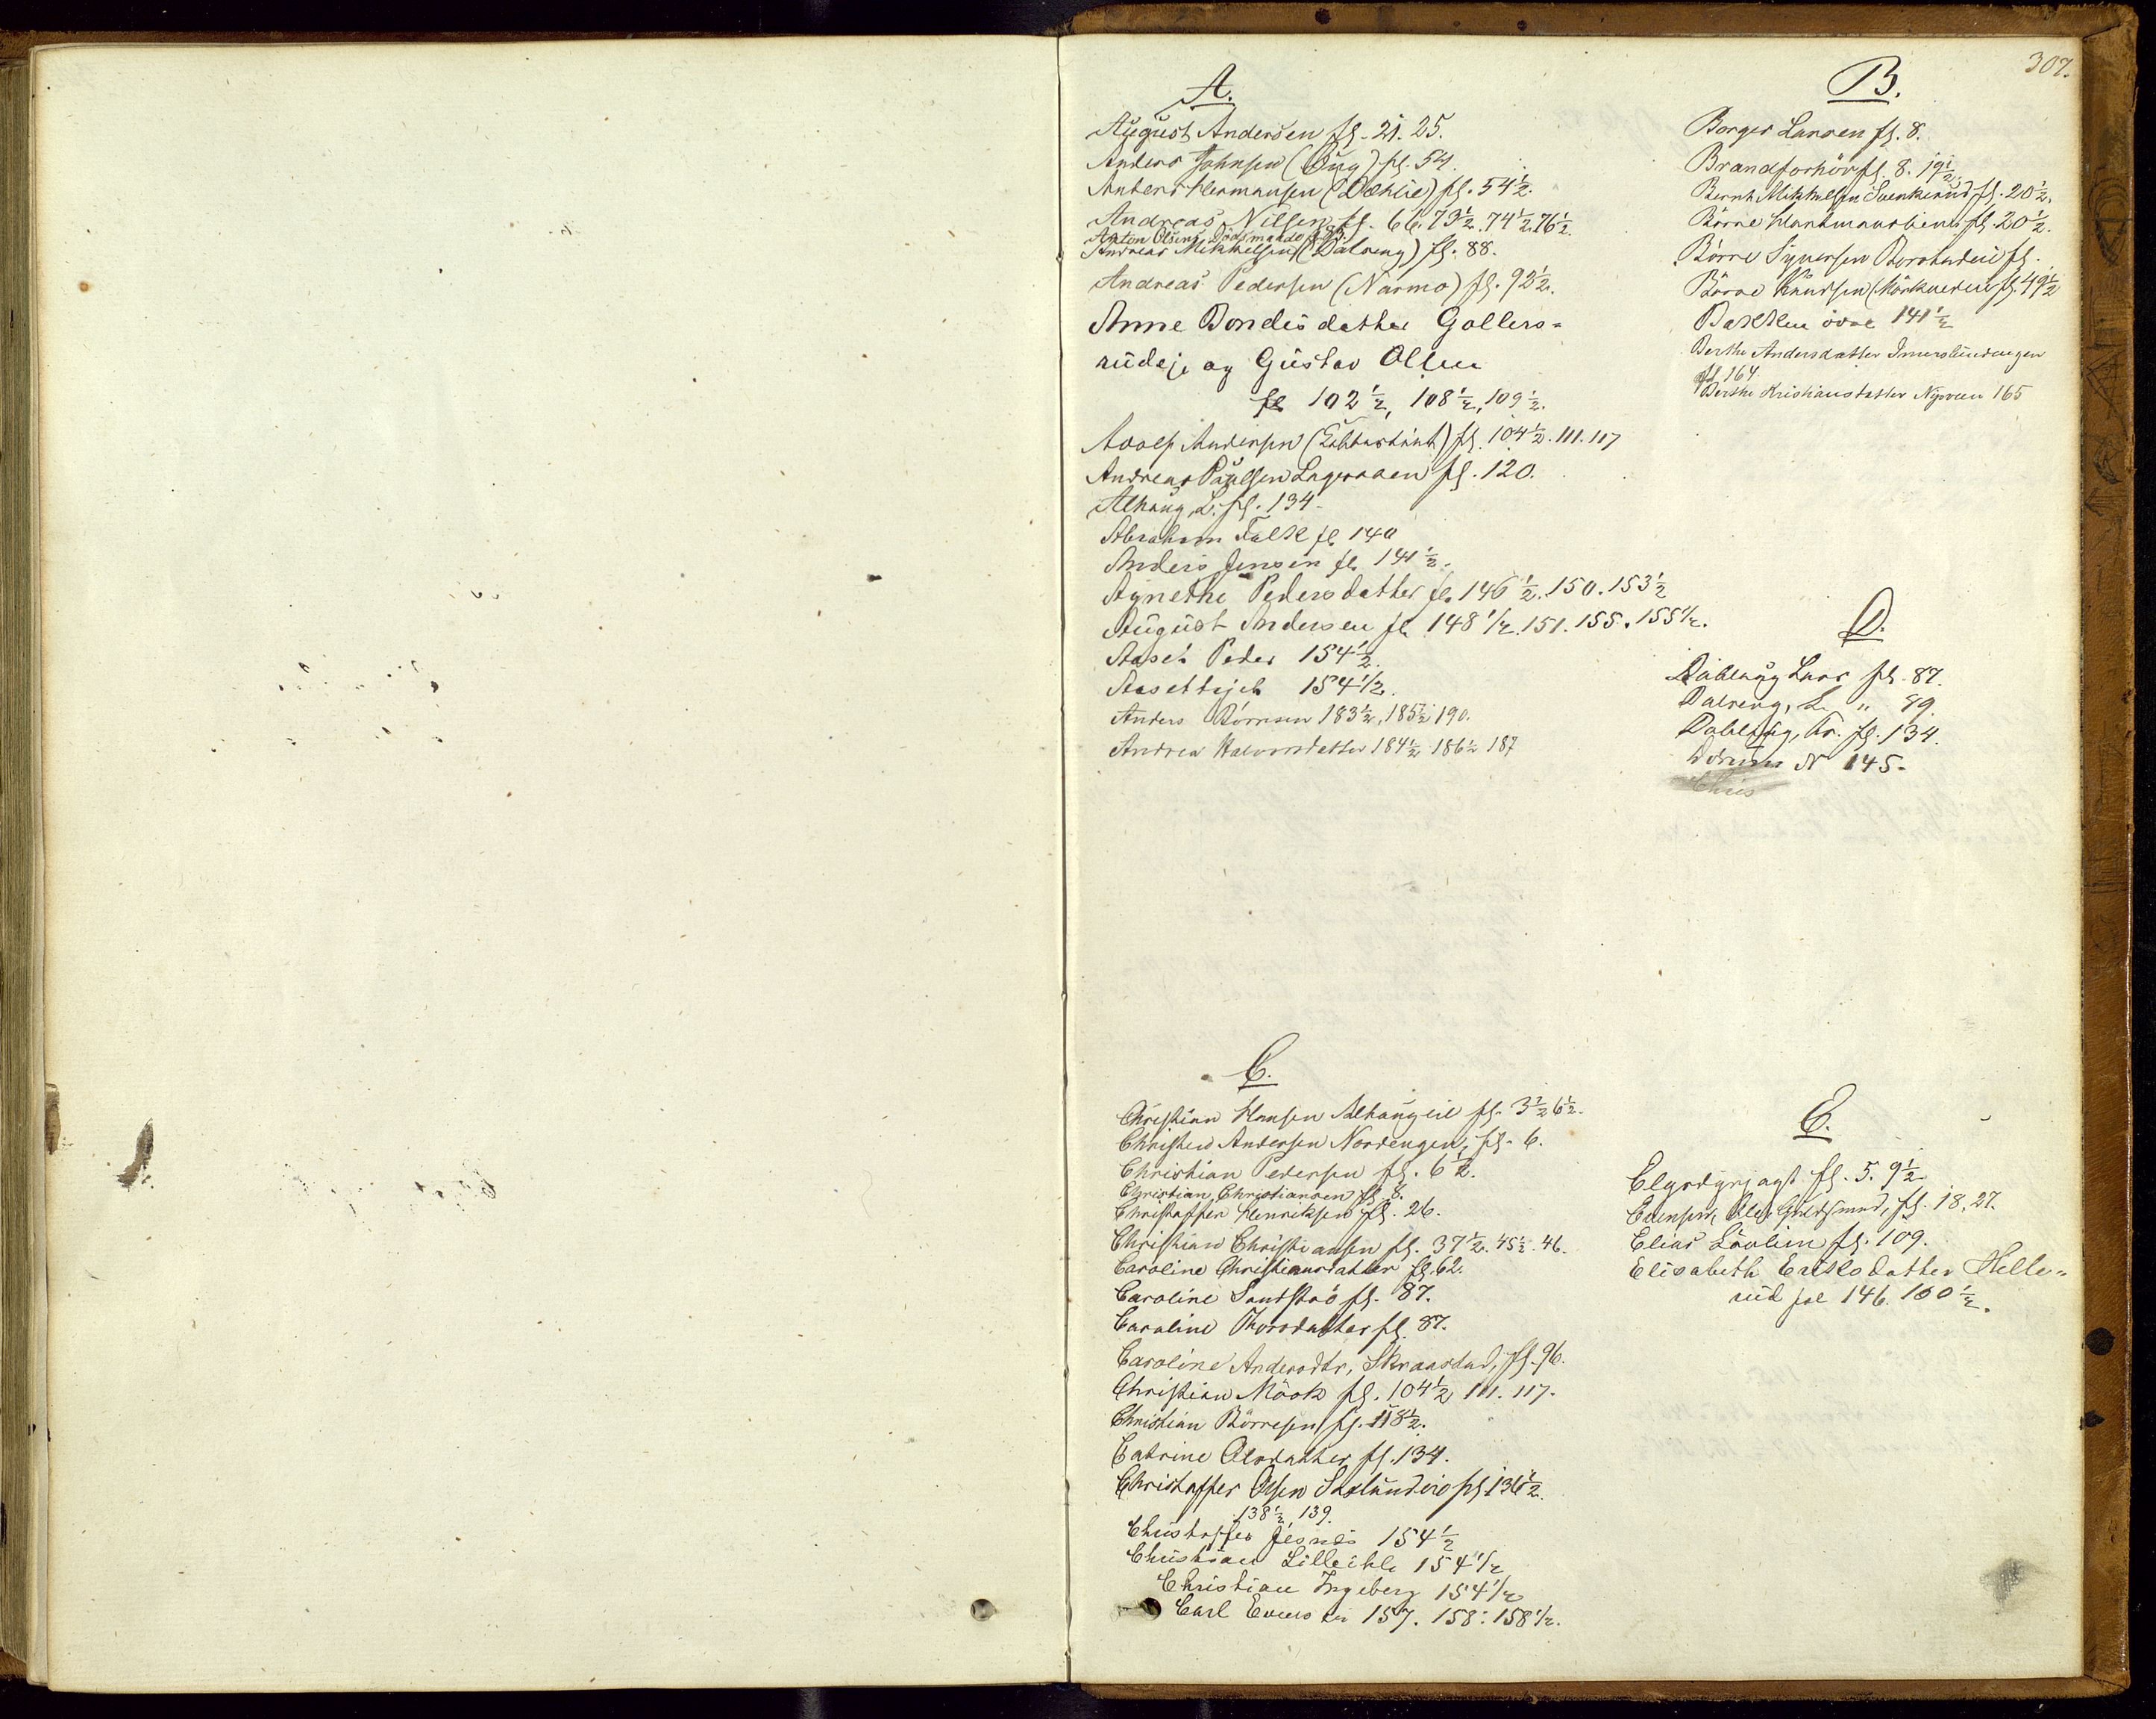 307.
A.
August Andersen fl. 21. 25.
Anders Johnsen (Bug) fl. 54.
Anders Hermansen (Dæhlie) fl. 54½.
Andreas Nilsen fl. 66. 73½. 74½. 76½.
Anton Olsens
Andreas Mikkelsen (Dalseng) fl. 88.
Andreas Pedersen (Narmo) fl. 92½.
Anne Bondesdatter Gollers-
rudeje og Gustav Olsen
fl 102½, 108½, 109½.
Adolf Andersen fl. 104½. 111. 117
Andreas Paulsen Lageraaen fl. 120.
Alhaug, L. fl. 134.
Abraham Falk fl 140
Anders Jensen fl. 141½.
Agnethe Pedersdatter fl. 146½. 150. 153½
August Andersen fl. 148½. 151. 155. 155½.
Aasen Peder 154½.
154½.
Anders Börresen 183½, 185½ 190.
Andrea Halvorsdatter 184½ 186½ 187
B.
Borger Larsen fl. 8.
Brandforhör fl. 8. 19½.
Bernt Mikkelsen Svenkerud fl. 20½.
Börre fl. 20½.
Börre Syversen fl.
Börre Knudsen fl. 49½
Bakken övre 141½
Berthe Andersdatter
fl 164
Berthe Kristiansdatter Nyveen 165
D.
Dablaug Lars fl. 87.
Dalseng, L. " 89.
Dablaug, Kr. fl. 134.
N 145.
Chris
C.
Christian Hansen Alhaugeie fl. 3½ 6½.
Christen Andersen Nordengen, fl. 6.
Christian Pedersen fl. 6½.
Christian Christiansen fl. 8.
Christoffer Henriksen fl. 26.
Christian Christiansen fl. 37½. 45½. 46.
Caroline Christiansdatter fl. 62.
Caroline Sandströ fl. 87.
Caroline Thorsdatter fl. 87.
Caroline Andersdtr, Skraastad, fl. 96.
Christian Mörk fl. 104½ 111. 117.
Christian Börresen fl. 118½.
Catrine Olsdatter fl. 134.
Christoffer Olsen Saxlundeie fl 136½.
138½, 139.
Christoffer Jesnes 154½
Christian Lilleihle 154½
Christian Ingeberg 154½
Carl 157. 158: 158½.
E.
Elgsdyrjagt fl. 5. 9½.
Evensen, Ole, Guldsmed, fl. 18, 27.
Elias Lövlien fl. 109.
Elisabeth Eriksdatter Helle-
rud fol 146. 160½.